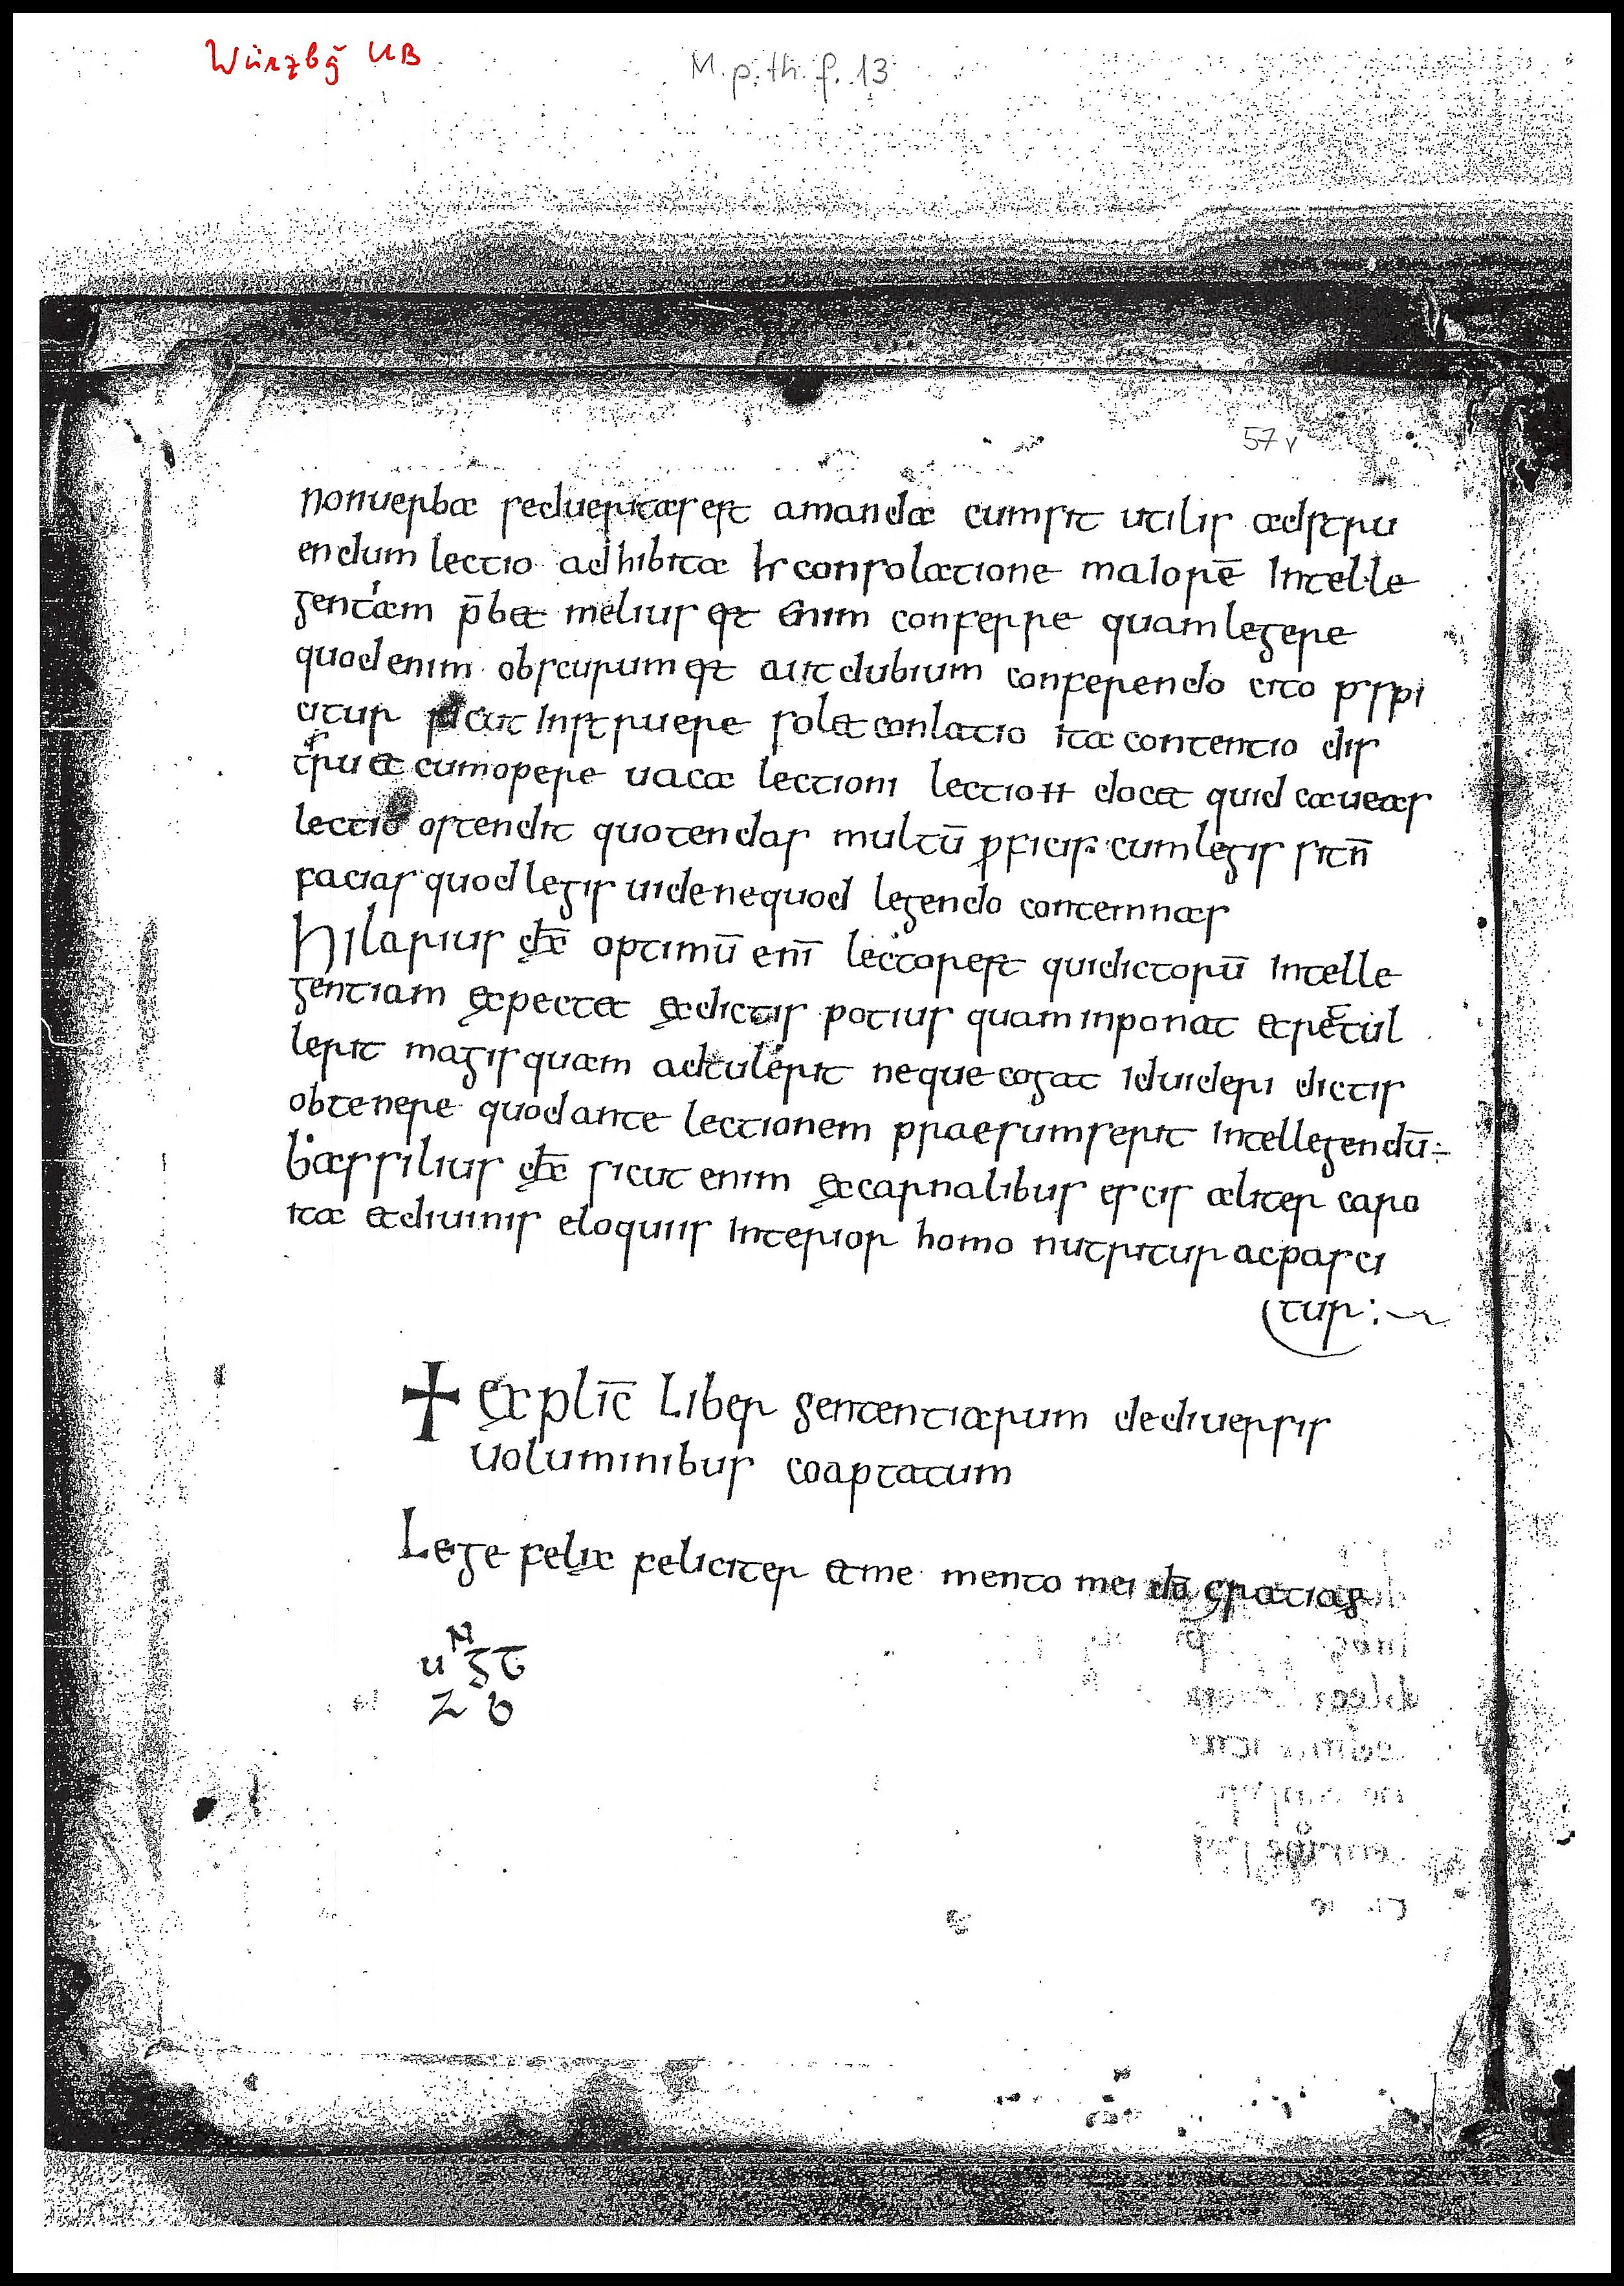 Würzbg̃ UB
M. p. th. f. 13
57 v
nonuerba sedueritasest amanda cumsit utilis adstru
endum lectio adhibita hr consolatione maiorē Intelle
gentiam p̄bet melius est enim conferre quam legere
quod enim obscurum est aut dubium conferendo cito prspi
citur sicut Instruere solet conlatio ita contentio dis
truet cumopere uaca lectioni lectio docet quid caueas
lectio ostendit quotendas multū proficis cumlegis sitn̄
facias quod legis uidenequod legendo contemnas
hilarius optimū enī lectorest quidictorū Intelle
gentiam expectet exdictis potius quam inponat etretul
lerit magis quam adtulerit neque cogat iduideri dictis
obtenere quodante lectionem praesumserit Intellegendū:
bassilius sicut enim excarnalibus escis aliter caro
ita etdiuinis eloquiis Interior homo nutritur acpasci
tur:~
+ explic̄ Liber sententiarum dediuersis
uoluminibus coaptatum
Lege felix feliciter etme mento mei dō gratias
N
u ꝫ τ
z b